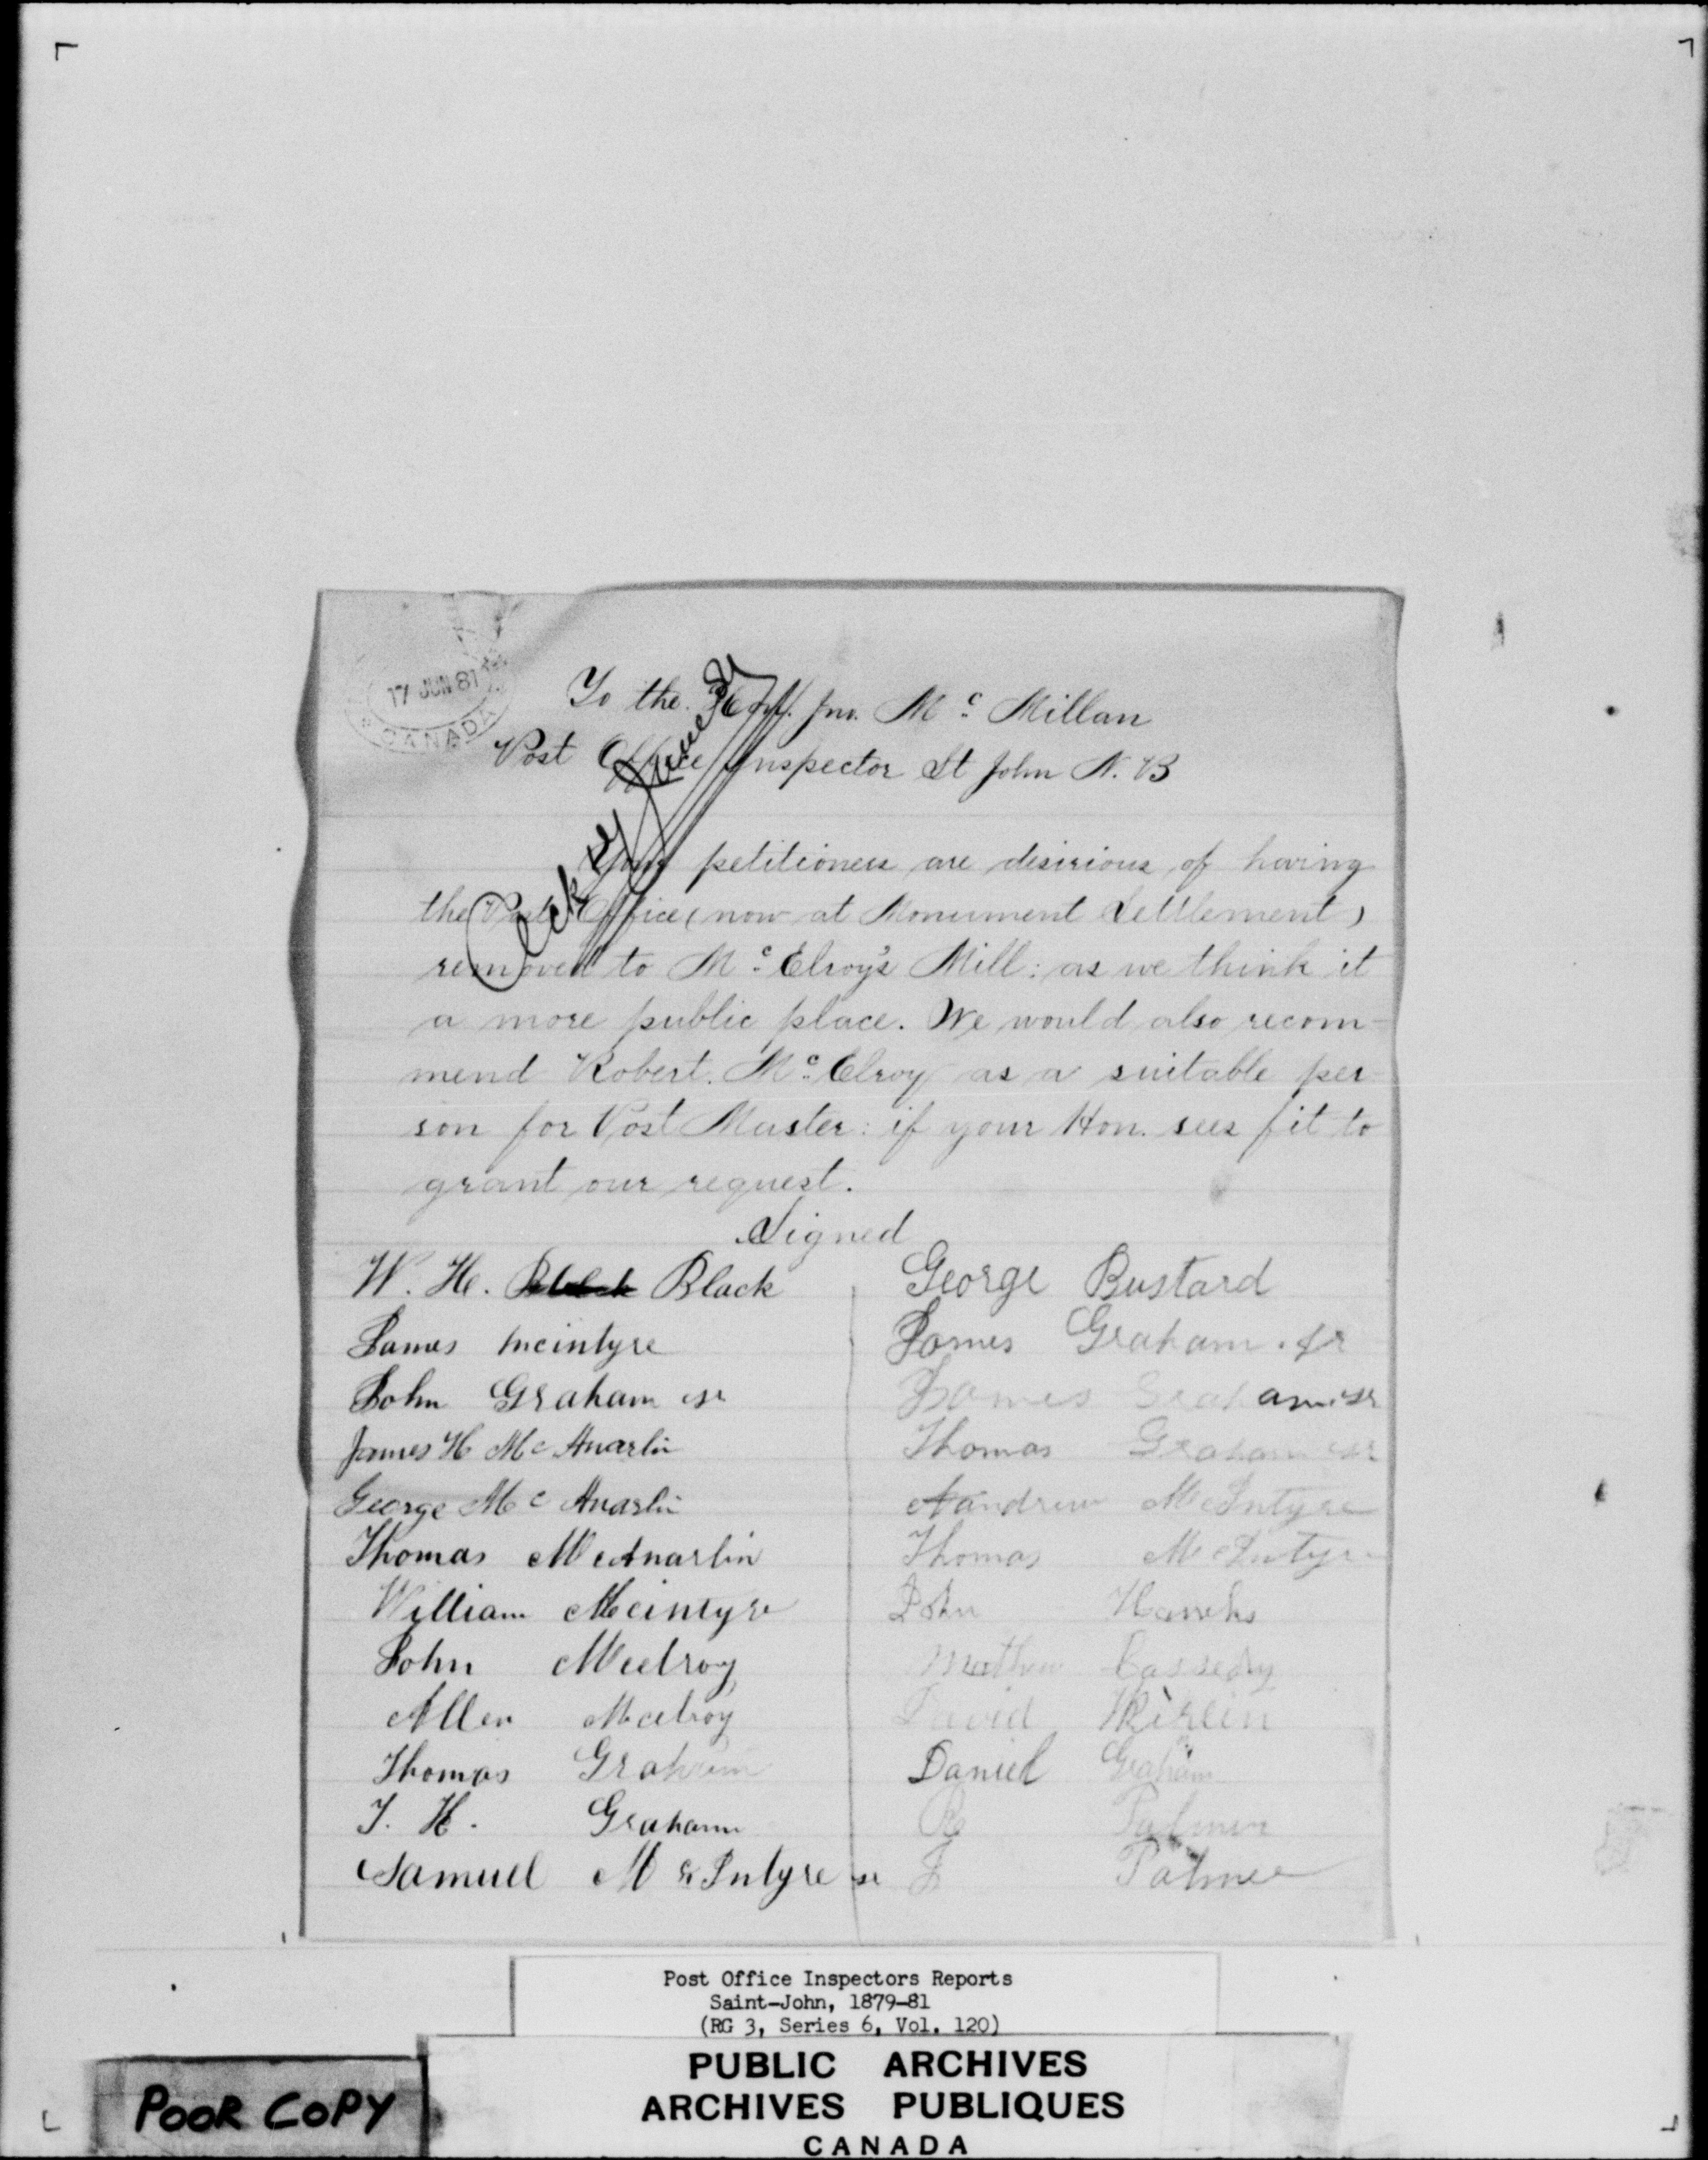 17 JUN 81
CANADA
To the Hon. Jno. Mc Millan
Post Office Inspector St John N. B
Your petitioners are desirious of having
the Post Office (now at Monument Settlement)
removed to Mc Elroy's Mill: as we think it
a more public place. We would also recom-
mend Robert. Mc Elroy as a suitable per-
son for Post Master: if your Hon. sees fit to
grant our request.
Signed
W. H. Black George Bustard
James Mcintyre James Graham . Jr
John Graham sr James Graham sr
James H Mc Anarlin Thomas Graham sr
George Mc Anarlin Aandrew McIntyre
Thomas McAnarlin Thomas McIntyre
William Mcintyre John
John Mcelroy Mathew Cassedy
Allen Mcelroy David Kirlin
Thomas Graham Daniel Graham
T. H. Graham R Palmer
Samuel Mc Intyre sr J Palmer
Post Office Inspectors Reports
Saint-John, 1879-81
(RG 3, Series 6, Vol. 120)
PUBLIC ARCHIVES
ARCHIVES PUBLIQUES
CANADA
POOR COPY